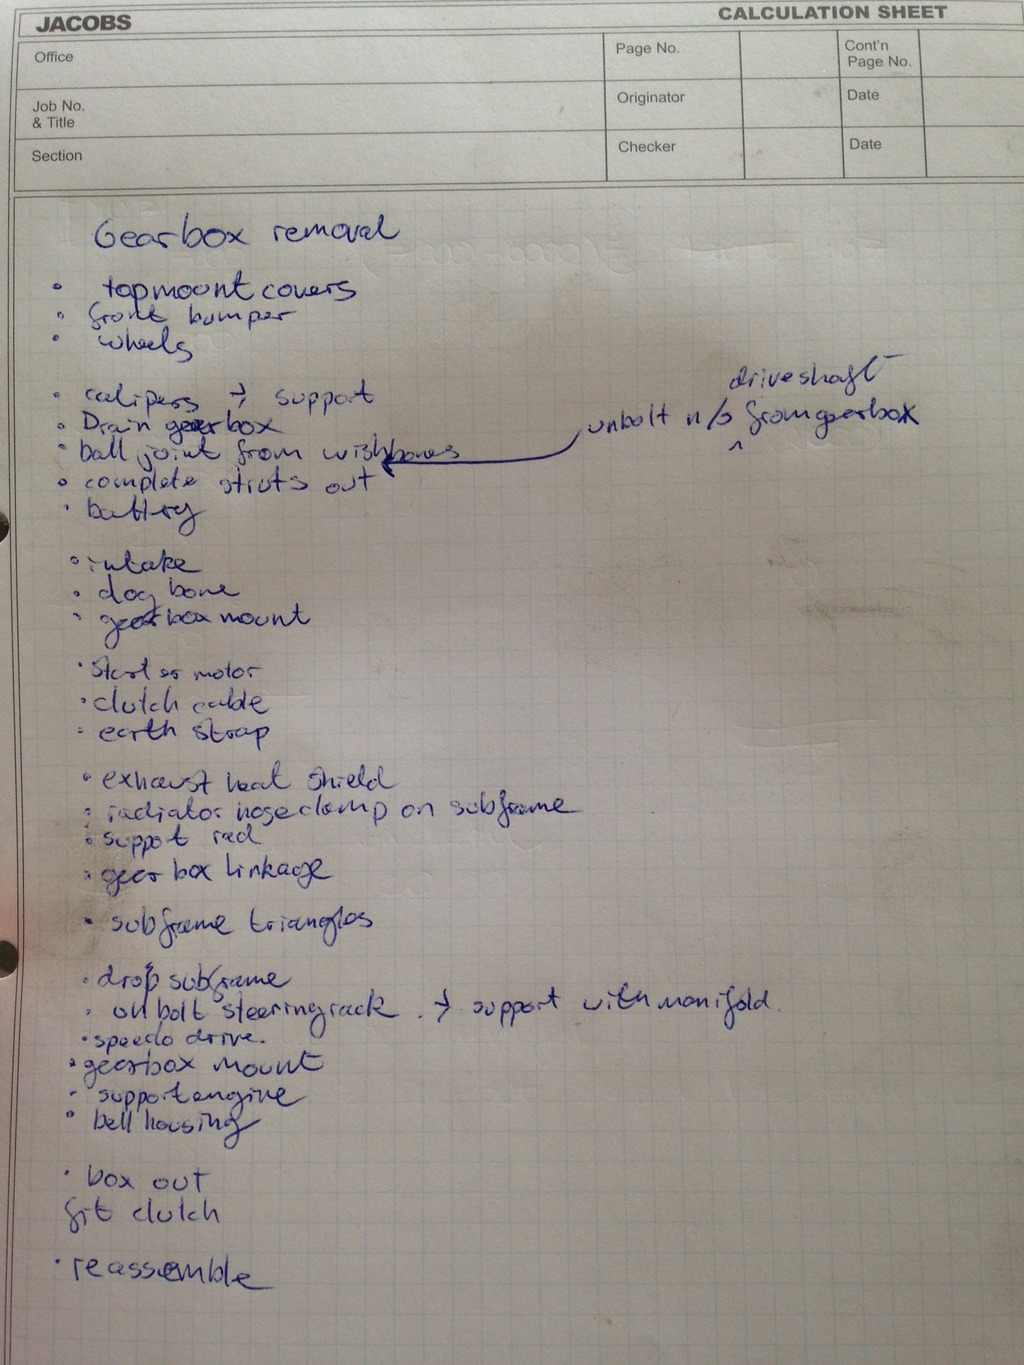 JACOBS
CALCULATION SHEET
Office
Page No.
Cont'n
Page No.
Job No.
& Title
Originator
Date
Section
Checker
Date
Gearbox removal
• topmount covers
• front bumper
• wheels
• calipers → support
driveshaft
unbolt n/s ^ from gearbox
• Drain gearbox
• ball joint from wishbones
• complete struts out
• battery
• intake
• dog bone
• gearbox mount
• Starter motor
• clutch cable
• earth strap
• exhaust heat shield
• radiator hose clamp on subframe
• support rad
• gear box linkage
• subframe triangles
• drop subframe
• unbolt steering rack. → support with manifold.
• speedo drive.
• gearbox mount
• support engine
• bell housing
• box out
fit clutch
• reassemble